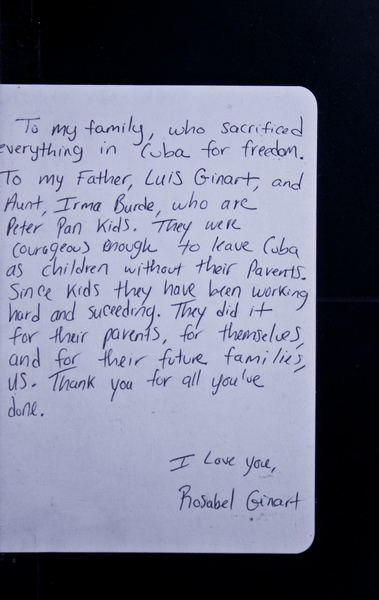 To my family, who sacrificed
everything in Cuba for freedom.
To my Father, Luis Ginart, and
Aunt, Irma Burde, who are
Peter Pan Kids. They were
courageous enough to leave Cuba
as children without their Parents.
Since kids they have been working
hard and suceeding. They did it
for their parents, for themselves,
and for their future families,
us. Thank you for all you've
done.
I Love you,
Rosabel Ginart